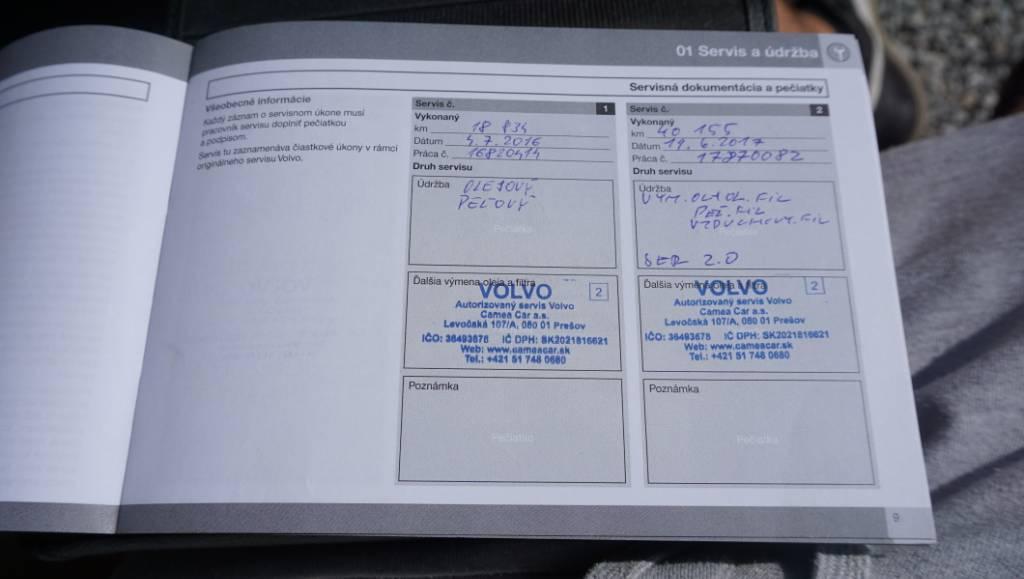 01 Servis a údržba
Servisná dokumentácia a pečiatky
Všeobecné informácie
Každý záznam o servisnom úkone musí
pracovník servisu doplniť pečiatkou
a podpisom.
Servis tu zaznamenáva čiastkové úkony v rámci
originálneho servisu Volvo.
Servis č. 1
Vykonaný
km 18 834
Dátum 4.7.2016
Práca č. 16820414
Druh servisu
Údržba OLEJOVÝ
PEĽOVÝ
Pečiatka
Ďalšia výmena oleja a filtra
VOLVO 2
Autorizovaný servis Volvo
Camea Car a.s.
Levočská 107/A, 080 01 Prešov
IČO: 36493678 IČ DPH: SK2021816621
Web: www.cameacar.sk
Tel.: +421 51 748 0680
Poznámka
Pečiatka
Servis č. 2
Vykonaný
km 40 155
Dátum 19.6.2017
Práca č. 17870082
Druh servisu
Údržba
VÝM. OL+OL. FIL
PEĽ. FIL
VZDUCHOVÝ. FIL
SER 2.0
Ďalšia výmena oleja a filtra
VOLVO 2
Autorizovaný servis Volvo
Camea Car a.s.
Levočská 107/A, 080 01 Prešov
IČO: 36493678 IČ DPH: SK2021816621
Web: www.cameacar.sk
Tel.: +421 51 748 0680
Poznámka
Pečiatka
9